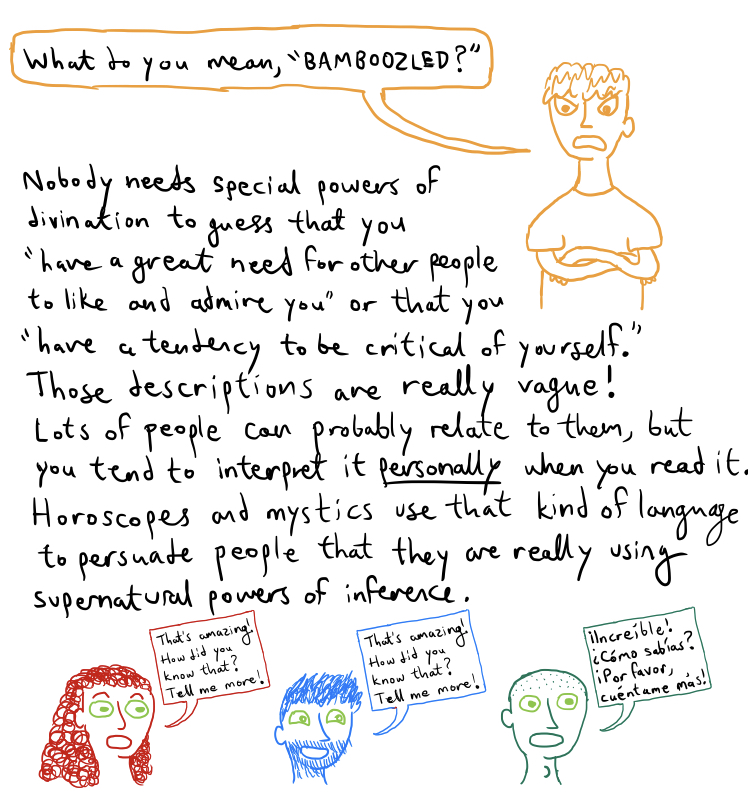 What do you mean, "BAMBOOZLED?"
Nobody needs special powers of
divination to guess that you
"have a great need for other people
to like and admire you" or that you
"have a tendency to be critical of yourself."
Those descriptions are really vague!
Lots of people can probably relate to them, but
you tend to interpret it personally when you read it.
Horoscopes and mystics use that kind of language
to persuade people that they are really using
supernatural powers of inference.
That's amazing!
How did you
know that?
Tell me more!
That's amazing!
How did you
know that?
Tell me more!
¡Increíble!
¿Cómo sabías?
¡Por favor,
cuéntame más!